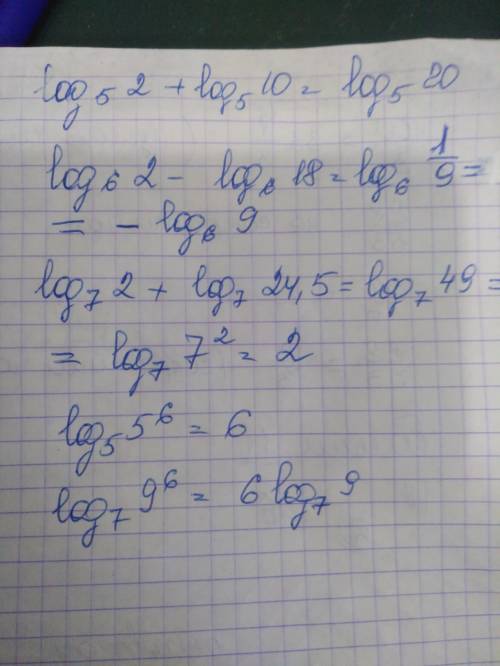 log₅ 2 + log₅ 10 = log₅ 20
log₆ 2 - log₆ 18 = log₆ 1/9 =
= - log₆ 9
log₇ 2 + log₇ 24,5 = log₇ 49 =
= log₇ 7² = 2
log₅ 5⁶ = 6
log₇ 9⁶ = 6 log₇ 9